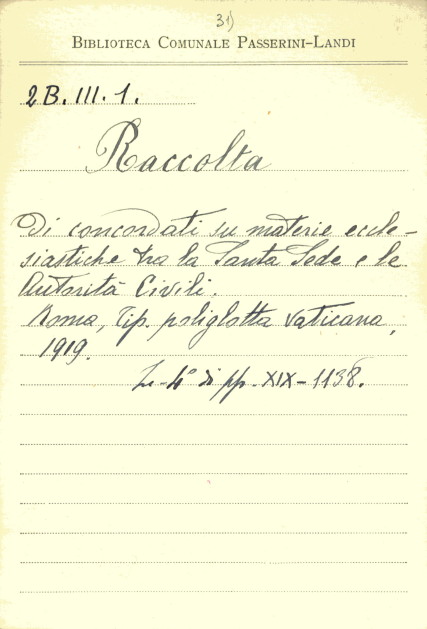 31)
BIBLIOTECA COMUNALE PASSERINI-LANDI
2B. III. 1.
Raccolta
Di concordati su materie eccle-
siastiche tra la Santa Sede e le
Autorità Civili.
Roma, Tip. poliglotta vaticana,
1919.
In-4° di pp. XIX-1138.